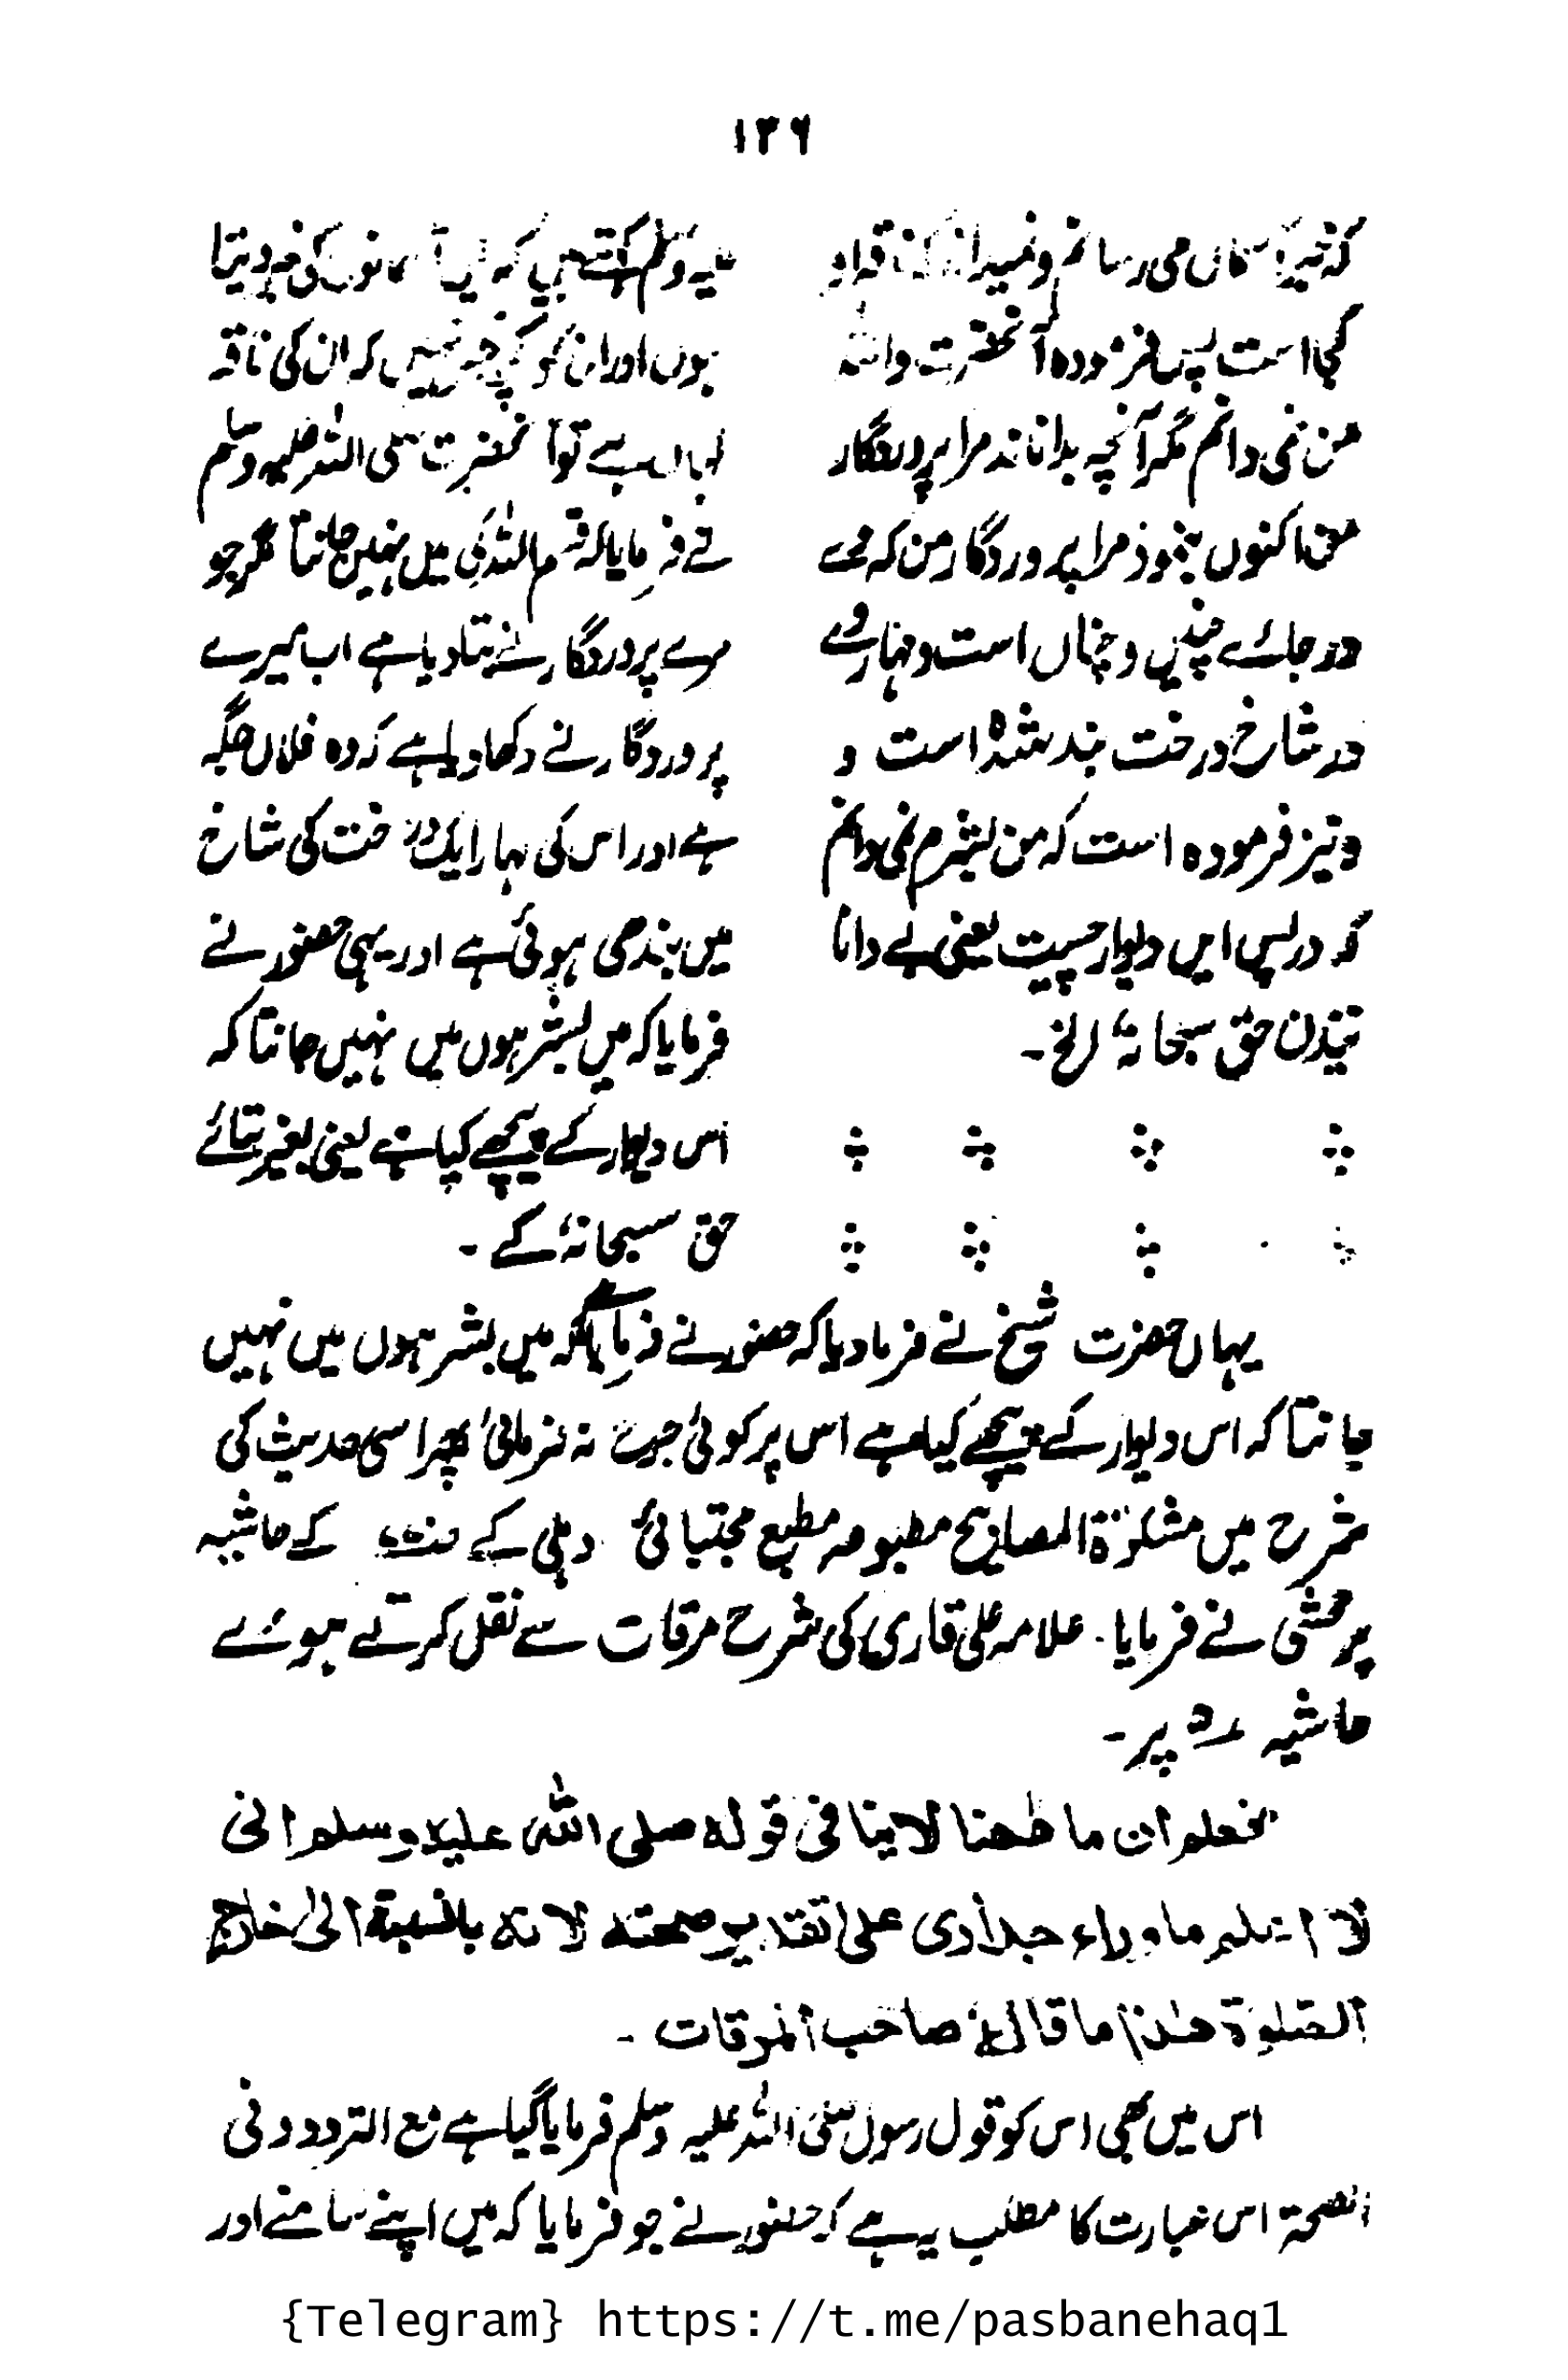 ۱۲۶
که خبر آسماں می رسانم و نمیداند که ناقه او
کجا است پس فرموده آنحضرت والله
من نمی دانم مگر آنچه بداناند مرا پروردگار
من اکنوں بنمود مرا پروردگار من که وے
در جائے چنیں و چناں است و مہار وے
در شاخ درخت بند شده است و
و نیز فرموده است که من بشرم نمی دانم
که در پس ایں دیوار چیست یعنی بے دانا
نیدن حق سبحانہٗ الخ۔
علیہ وسلم کہتے ہیں کہ میں آسمانوں کی خبر دیتا
ہوں اور ان کو کچھ خبر نہیں کہ ان کی ناقہ
کہاں ہے تو آنحضرت صلی اللہ علیہ وسلم
نے فرمایا کہ قسم اللہ کی میں نہیں جانتا مگر جو
میرے پروردگار نے بتا دیا ہے اب میرے
پروردگار نے دکھا دیا ہے کہ وہ فلاں جگہ
ہے اور اس کی مہار ایک درخت کی شاخ
میں بندھی ہوئی ہے اور یہی حضور نے
فرمایا کہ میں بشر ہوں میں نہیں جانتا کہ
اس دیوار کے پیچھے کیا ہے یعنی بغیر بتائے
حق سبحانہٗ کے ۔
یہاں حضرت شیخ نے فرما دیا کہ حضور نے فرمایا کہ میں بشر ہوں میں نہیں
جانتا کہ اس دیوار کے پیچھے کیا ہے اس پر کوئی جرح نہ فرمائی پھر اسی حدیث کی
شرح میں مشکوٰۃ المصابیح مطبوعہ مطبع مجتبائی دہلی کے کے حاشیہ
پر محشی نے فرمایا۔ علامہ علی قاری کی شرح مرقات سے نقل کرتے ہوئے
حاشیہ پر ۔
ان ما ھٰھنا لا ینافی قولہ صلی اللہ علیہ وسلم انی
لا اعلم ما وراء جداری علیٰ تقدیر صحتہ لانہ بالنسبۃ الیٰ خارج
الصلوٰۃ ھٰذا ما قالہٗ صاحب المرقات ۔
اس میں بھی اس کو قول رسول صلی اللہ علیہ وسلم فرمایا گیا ہے مع التردد فی
الصحۃ اس عبارت کا مطلب یہ ہے کہ حضور نے جو فرمایا کہ میں اپنے سامنے اور
{Telegram} https://t.me/pasbanehaq1